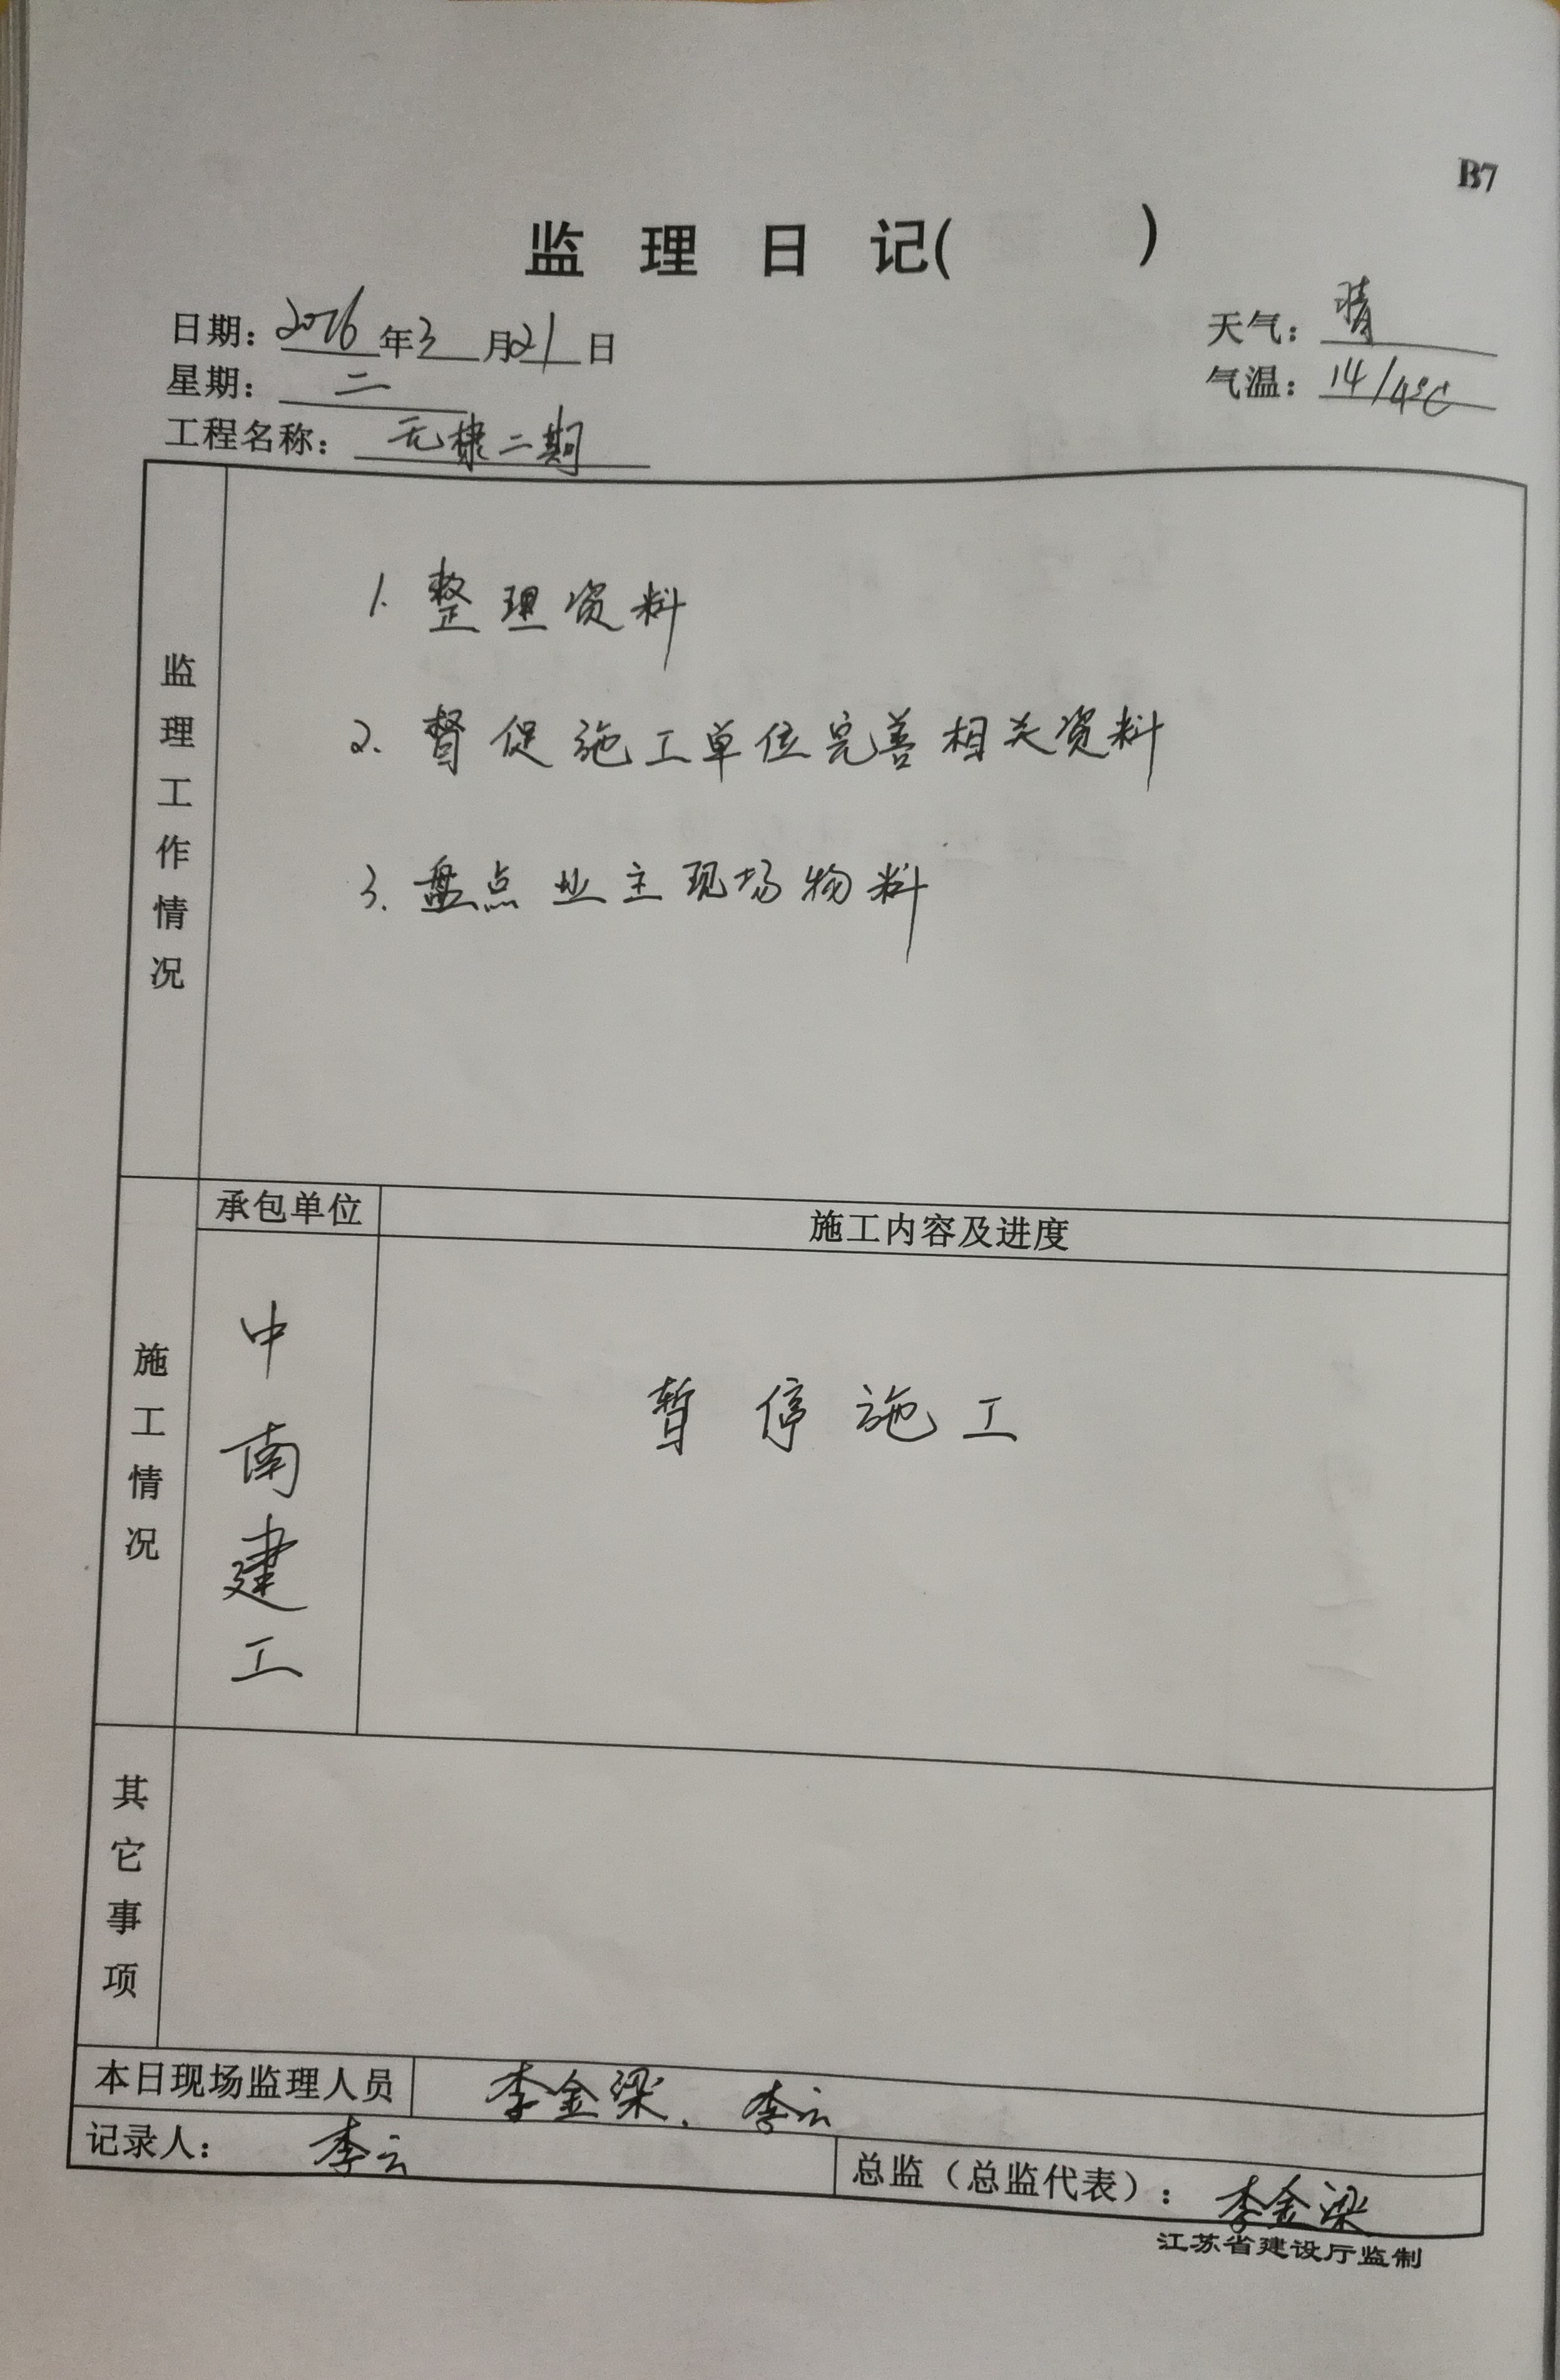 B7
监理日记( )
日期: 2016年3月21日
天气: 晴
星期: 二
气温: 14/4℃
工程名称: 无棣二期
监理工作情况
1. 整理资料
2. 督促施工单位完善相关资料
3. 盘点业主现场物料
施工情况
承包单位
施工内容及进度
中南建工
暂停施工
其它事项
本日现场监理人员 李金梁、李云
记录人: 李云
总监（总监代表）: 李金梁
江苏省建设厅监制